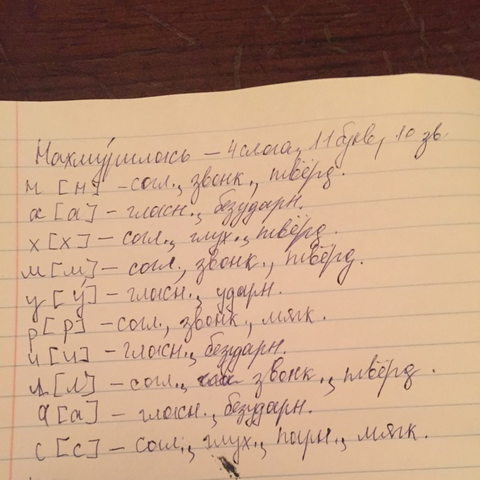 Нахму́рилась – 4 слога, 11 букв, 10 зв.
н [н] – согл., звонк., твёрд.
а [а] – гласн., безударн.
х [х] – согл., глух., твёрд.
м [м] – согл., звонк., твёрд.
у [у́] – гласн., ударн.
р [р] – согл., звонк., мягк.
и [и] – гласн., безударн.
л [л] – согл., звонк., твёрд.
а [а] – гласн., безударн.
с [с] – согл., глух., парн., мягк.